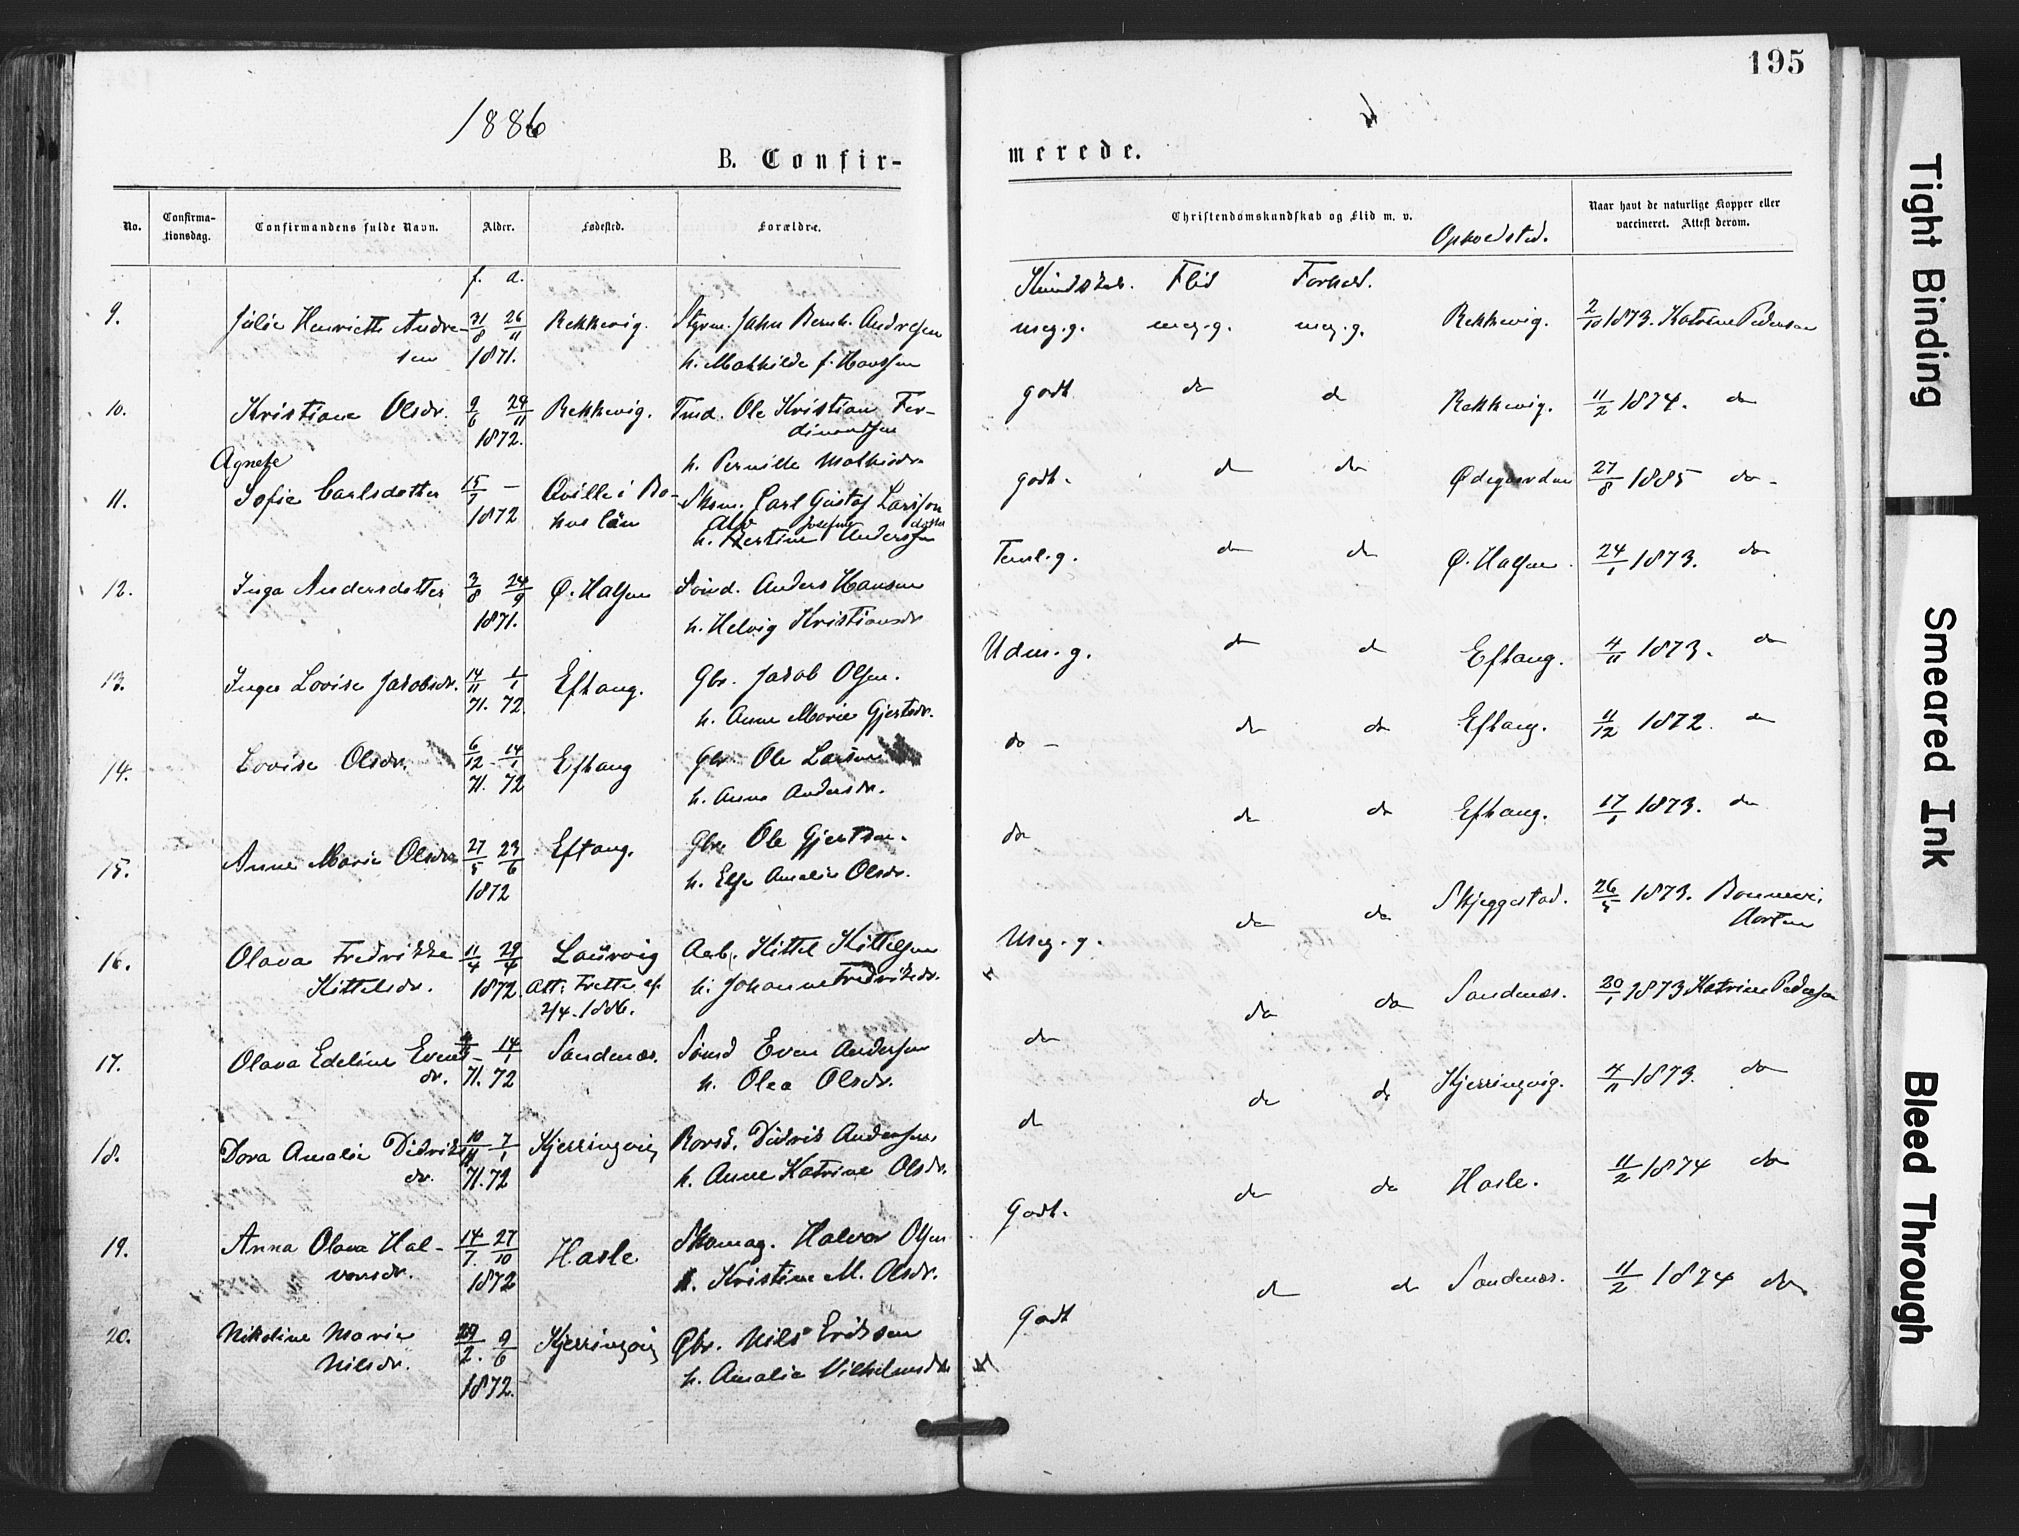 195
1886
B. Confir-
merede.
No.
Confirma-
tionsdag.
Confirmandens fulde Navn.
Alder.
Fødested.
Forældre.
Christendomskundskab og Flid m. v.
Opholdsted.
Naar havt de naturlige Kopper eller
vaccineret. Attest derom.
f. d.
Kundskab. Flid Forhold.
9. Julie Henriette Andre- 31/8 26/11 Rekkevig. Styrm. Jahn Bernh. Andresen
sen 1871. h. Mathilde f. Hansen
meg.g. meg.g. meg.g. Rekkevig. 2/10 1873. Katrine Pedersen
10. Kristiane Olsdr. 9/6 24/11 Rekkevig. Tmd. Ole Kristian Fer-
1872. dinandsen
h. Pernille Mathisdr
godt do do Rekkevig. 11/2 1874. do
Agnete
11. Sofie Carlsdotter 15/7 — Qville i Bo-
1872 hus län
Carl Gustaf Larsson
Josefine dotter
h. Andersson
godt. do do Ødegaarden 27/8 1885 do -
12. Inga Andersdotter 3/8 24/9 Ø. Halsen Sømd. Anders Hansen
1871. h. Helvig Kristiansdr
Teml.g. do do Ø. Halsen 24/1 1873. do
13. Inger Lovise Jakobsdr. 14/11 1/1 Eftang. Gbr. Jakob Olsen.
71. 72. h. Anne Marie Gjertsdr.
Udm.g. do do Eftang. 4/11 1873. do
14. Lovise Olsdr. 6/12 - 14/1 Eftang Gbr Ole Larsen
71. 72 h. Anne Andersdr.
do - do do Eftang. 11/12 1872. do
15. Anne Marie Olsdr 27/5 23/6 Eftang. Gbr. Ole Gjertsen.
1872 h. Else Amalie Olsdr.
do do do Eftang. 17/1 1873. do
16. Olava Fredrikke 11/4 29/4 Laurvig Arb. Kittel Kittelsen
Kittelsdr. 1872. Att: h. Johanne Fredriksdr.
2/4. 1886.
Meg.g. do do Skjeggestad. 26/5 1873.
17. Olava Edeline Evens 14/1 Sandenæs. Sømd Even Andersen
dr. 71. 72 h. Olea Olsdr.
do do do Sandenæs. 20/1 1873 Katrine Pedersen
18. Dora Amalie Didriks 7/1 Kjerringvig Didrik Andersen,
dr. 71. 72 h. Anne Katrine Olsdr.
do do do Kjerringvig. 4/11 1873. do
19. Anna Olava Hal- 14/7. 27/10 Hasle Skomag. Halvor Olsen
vorsdr. 1872 h. Kristine M. Olsdr.
Godt. do do Hasle. 11/2 1874 do
20. Nikoline Marie 2. 9/6 Kjerringvig Gbr. Nils Eriksen
Nilsdr. 1872. h. Amalie Vilhelmsdtr
Godt do do Sandenæs. 11/2 1874 do.
Tight Binding
Smeared Ink
Bleed Through